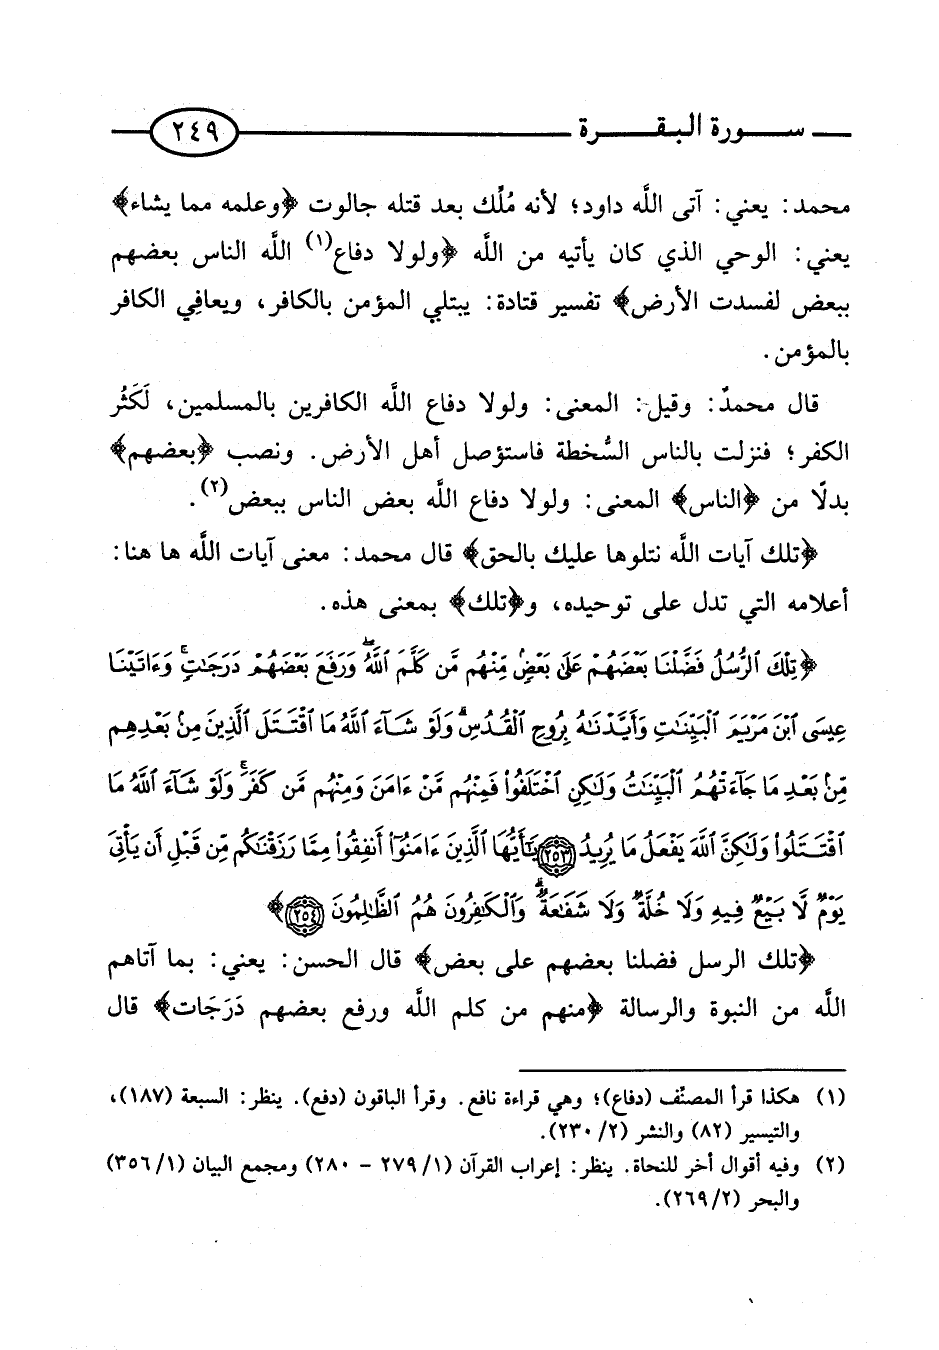 سورة البقرة ٢٤٩
محمد: يعني: آتى اللَّه داود؛ لأنه مُلِّك بعد قتله جالوت ﴿وعلمه مما يشاء﴾
يعني: الوحي الذي كان يأتيه من اللَّه ﴿ولولا دفاع(١) اللَّه الناس بعضهم
ببعض لفسدت الأرض﴾ تفسير قتادة: يبتلي المؤمن بالكافر، ويعافِي الكافر
بالمؤمن.
قال محمدٌ: وقيل: المعنى: ولولا دفاع اللَّه الكافرين بالمسلمين، لَكَثُر
الكفر؛ فنزلت بالناس السُّخطة فاستؤصل أهل الأرض. ونصب ﴿بعضهم﴾
بدلًا من ﴿الناس﴾ المعنى: ولولا دفاع اللَّه بعض الناس ببعض(٢).
﴿تلك آيات اللَّه نتلوها عليك بالحق﴾ قال محمد: معنى آيات اللَّه ها هنا:
أعلامه التي تدل على توحيده، و﴿تلك﴾ بمعنى هذه.
﴿تِلْكَ ٱلرُّسُلُ فَضَّلْنَا بَعْضَهُمْ عَلَىٰ بَعْضٍ مِّنْهُم مَّن كَلَّمَ ٱللَّهُ ۖ وَرَفَعَ بَعْضَهُمْ دَرَجَٰتٍ ۚ وَءَاتَيْنَا
عِيسَى ٱبْنَ مَرْيَمَ ٱلْبَيِّنَٰتِ وَأَيَّدْنَٰهُ بِرُوحِ ٱلْقُدُسِ ۗ وَلَوْ شَآءَ ٱللَّهُ مَا ٱقْتَتَلَ ٱلَّذِينَ مِنۢ بَعْدِهِم
مِّنۢ بَعْدِ مَا جَآءَتْهُمُ ٱلْبَيِّنَٰتُ وَلَٰكِنِ ٱخْتَلَفُوا۟ فَمِنْهُم مَّنْ ءَامَنَ وَمِنْهُم مَّن كَفَرَ ۚ وَلَوْ شَآءَ ٱللَّهُ مَا
ٱقْتَتَلُوا۟ وَلَٰكِنَّ ٱللَّهَ يَفْعَلُ مَا يُرِيدُ ٢٥٣ يَٰٓأَيُّهَا ٱلَّذِينَ ءَامَنُوٓا۟ أَنفِقُوا۟ مِمَّا رَزَقْنَٰكُم مِّن قَبْلِ أَن يَأْتِىَ
يَوْمٌ لَّا بَيْعٌ فِيهِ وَلَا خُلَّةٌ وَلَا شَفَٰعَةٌ ۗ وَٱلْكَٰفِرُونَ هُمُ ٱلظَّٰلِمُونَ ٢٥٤﴾
﴿تلك الرسل فضلنا بعضهم على بعض﴾ قال الحسن: يعني: بما آتاهم
اللَّه من النبوة والرسالة ﴿منهم من كلم اللَّه ورفع بعضهم دَرَجَات﴾ قال
(١) هكذا قرأ المصنّف (دفاع)؛ وهي قراءة نافع. وقرأ الباقون (دفع). ينظر: السبعة (١٨٧)،
والتيسير (٨٢) والنشر (٢/ ٢٣٠).
(٢) وفيه أقوال أخر للنحاة. ينظر: إعراب القرآن (١/ ٢٧٩ - ٢٨٠) ومجمع البيان (١/ ٣٥٦)
والبحر (٢/ ٢٦٩).